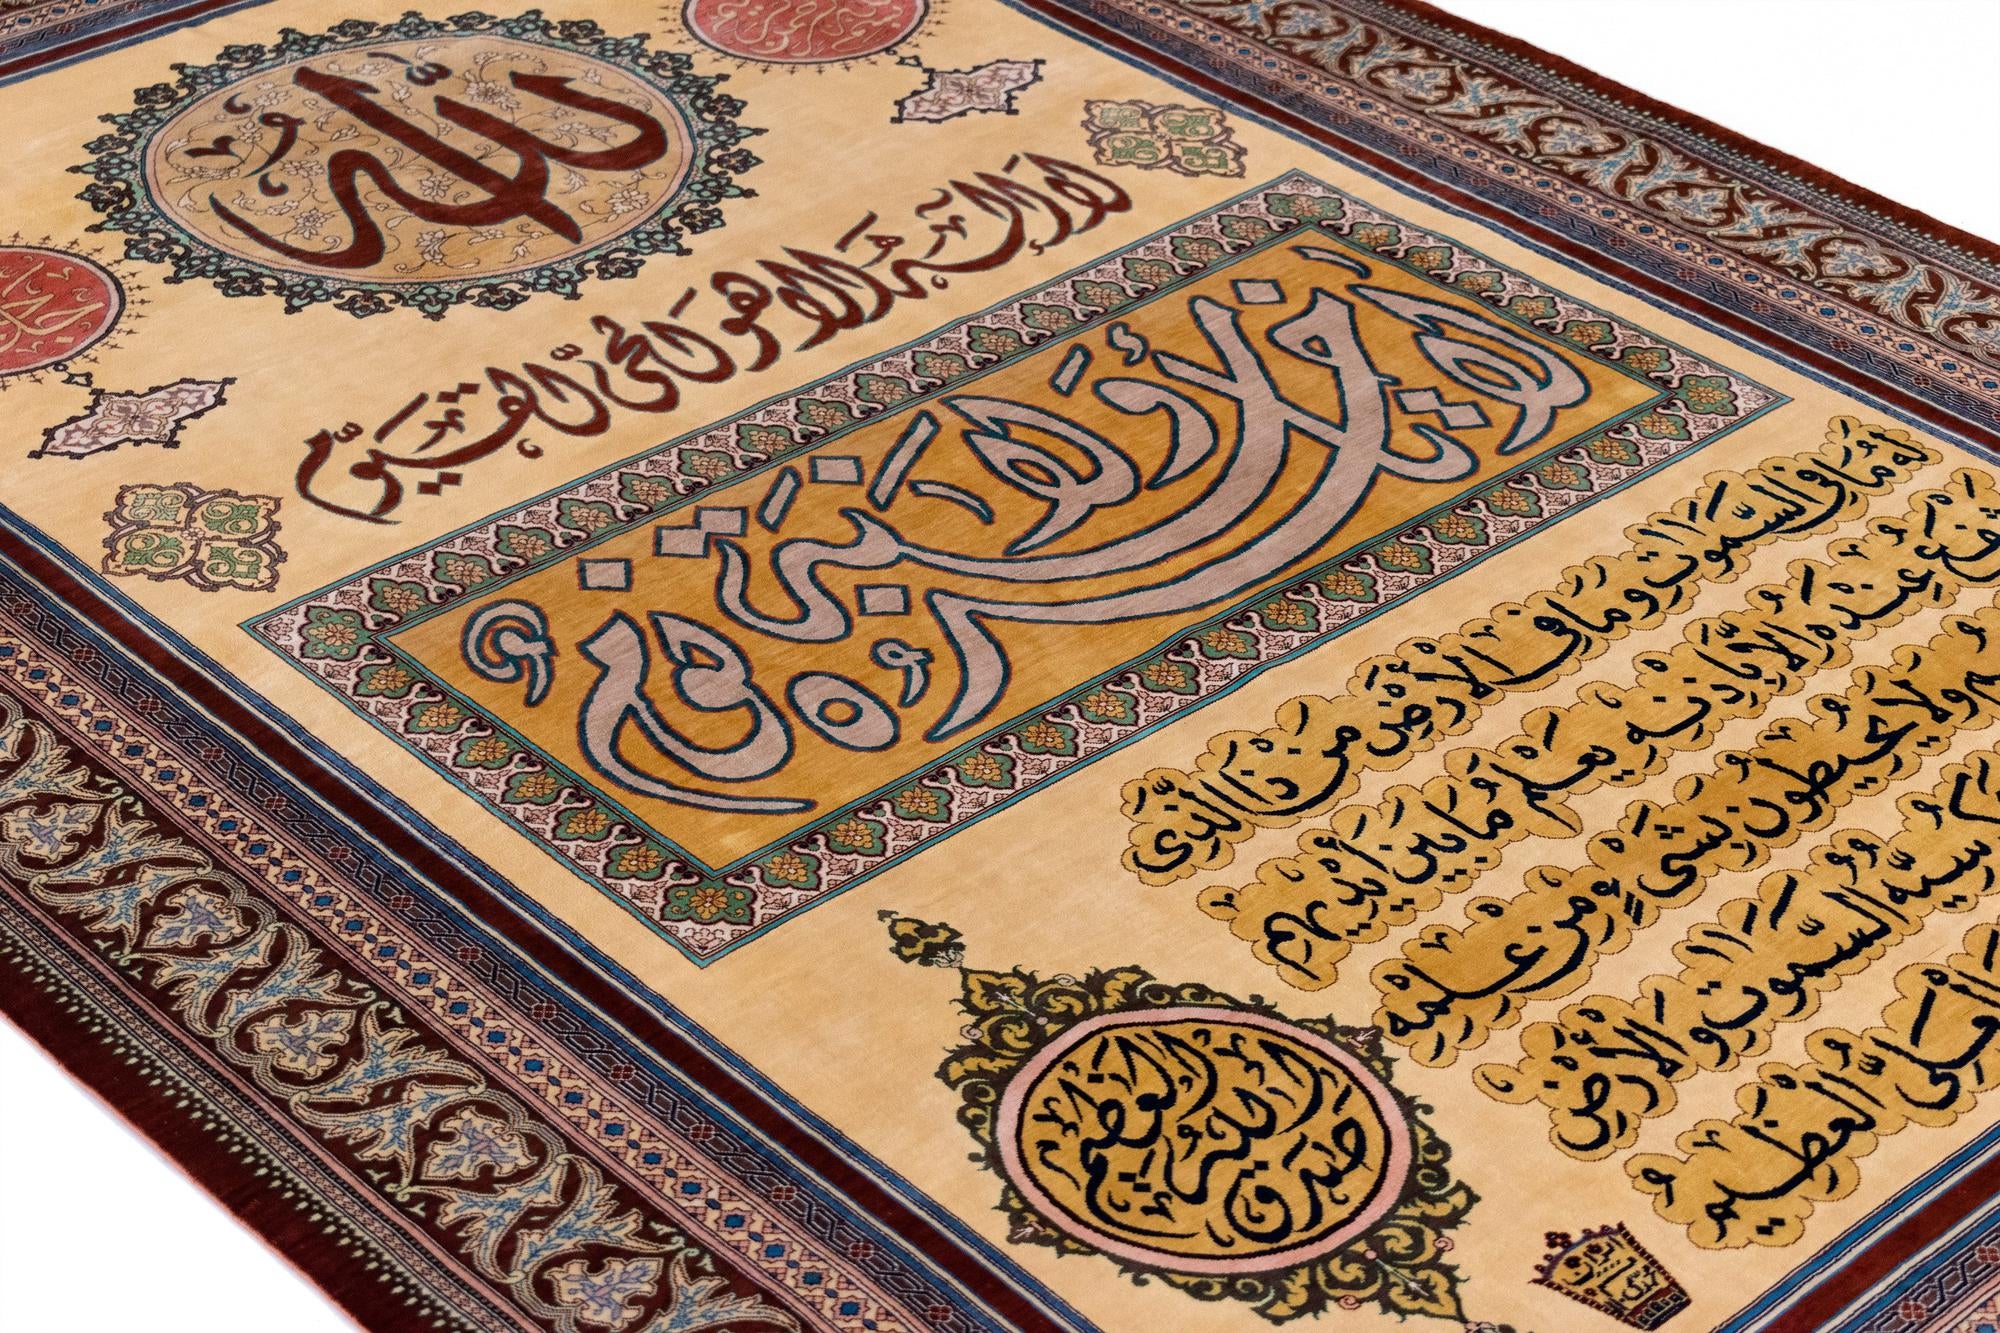 الله
الله لا إله إلا هو الحي القيوم
لا تأخذه سنة ولا نوم
له ما في السموات وما في الأرض من ذا الذي
يشفع عنده إلا بإذنه يعلم ما بين أيديهم
ولا يحيطون بشيء من علمه
كرسيه السموات والأرض
العلي العظيم
صدق الله العلي العظيم